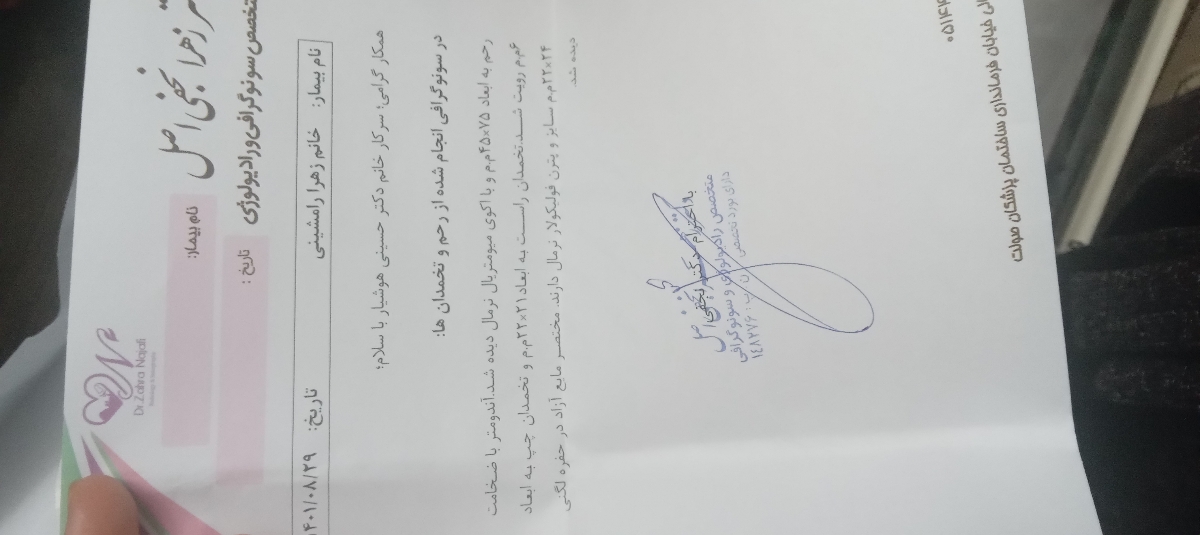 زهرا نجفی اصل
تخصص سونوگرافی و رادیولوژی
Dr Zahra Najafi
نام بیمار:
تاریخ :
نام بیمار: خانم زهرا رامشینی تاریخ: ۴۰۱/۰۸/۲۹
همکار گرامی؛ سرکار خانم دکتر حسینی هوشیار با سلام؛
در سونوگرافی انجام شده از رحم و تخمدان ها:
رحم به ابعاد ۴۵×۷۵م.م و با اکوی میومتریال نرمال دیده شد.آندومتر با ضخامت
۶م.م رویت شد.تخمدان راست به ابعاد ۲۲×۲۱م.م و تخمدان چپ به ابعاد
۲۲×۲۴م.م سایز و پترن فولیکولار نرمال دارند. مختصر مایع آزاد در حفره لگنی
دیده شد
با احترام دکتر نجفی اصل
متخصص رادیولوژی و سونوگرافی
دارای بورد تخصصی
۱۴۸۲۷۶
خیابان فرمانداری ساختمان پزشکان مبولت
۰۵۱۴۴